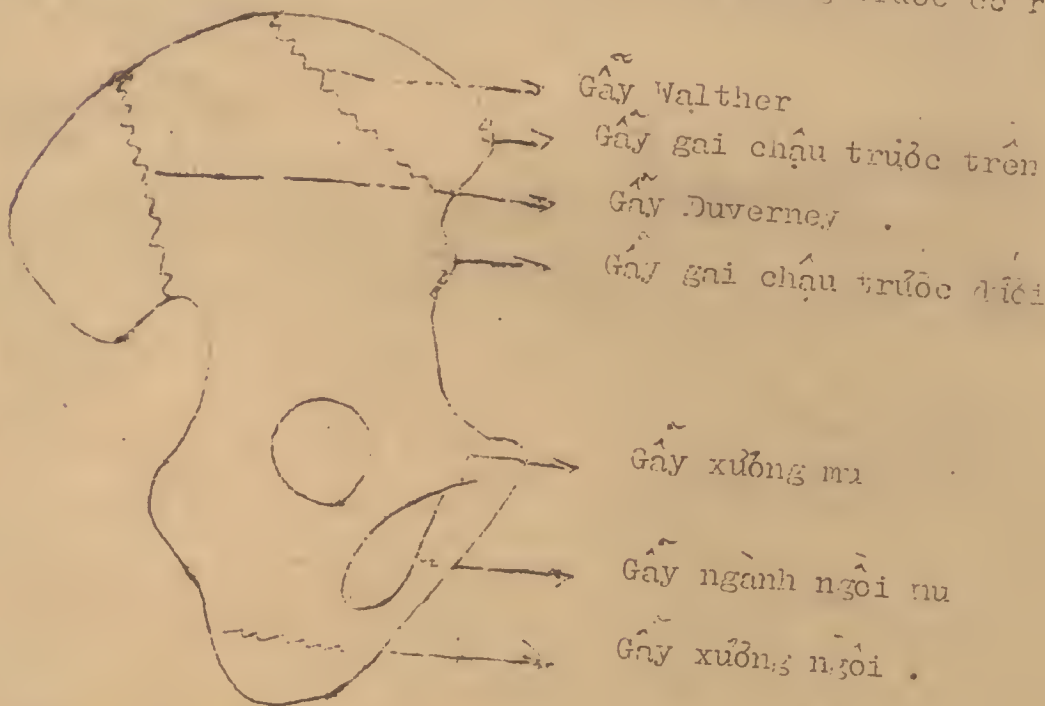 Gẫy Walther
Gẫy gai chậu trước trên
Gẫy Duverney .
Gẫy gai chậu trước dưới
Gẫy xương mu
Gẫy ngành ngồi mu
Gẫy xương ngồi .